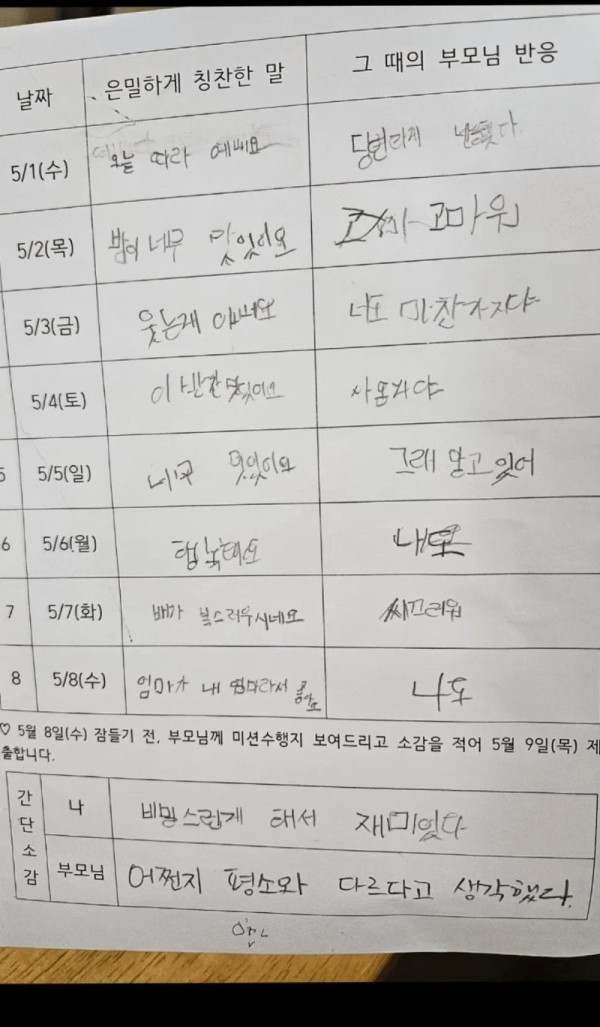 날짜 은밀하게 칭찬한 말 그 때의 부모님 반응
5/1(수) 오늘 따라 예뻐요
5/2(목) 밥이 너무 맛있어요 고마워
5/3(금) 웃는게 너도 마찬가지야
5/4(토) 이 반찬 맛있어요
5 5/5(일) 멋있어요 그래 알고 있어
6 5/6(월) 행복해요 내도
7 5/7(화) 배가 복스러우시네요 씨끄러워
8 5/8(수) 엄마가 내 엄마라서 좋아요 나도
♡ 5월 8일(수) 잠들기 전, 부모님께 미션수행지 보여드리고 소감을 적어 5월 9일(목) 제
출합니다.
간단소감
나 비밀스럽게 해서 재미있다
부모님 어쩐지 평소와 다르다고 생각했다.